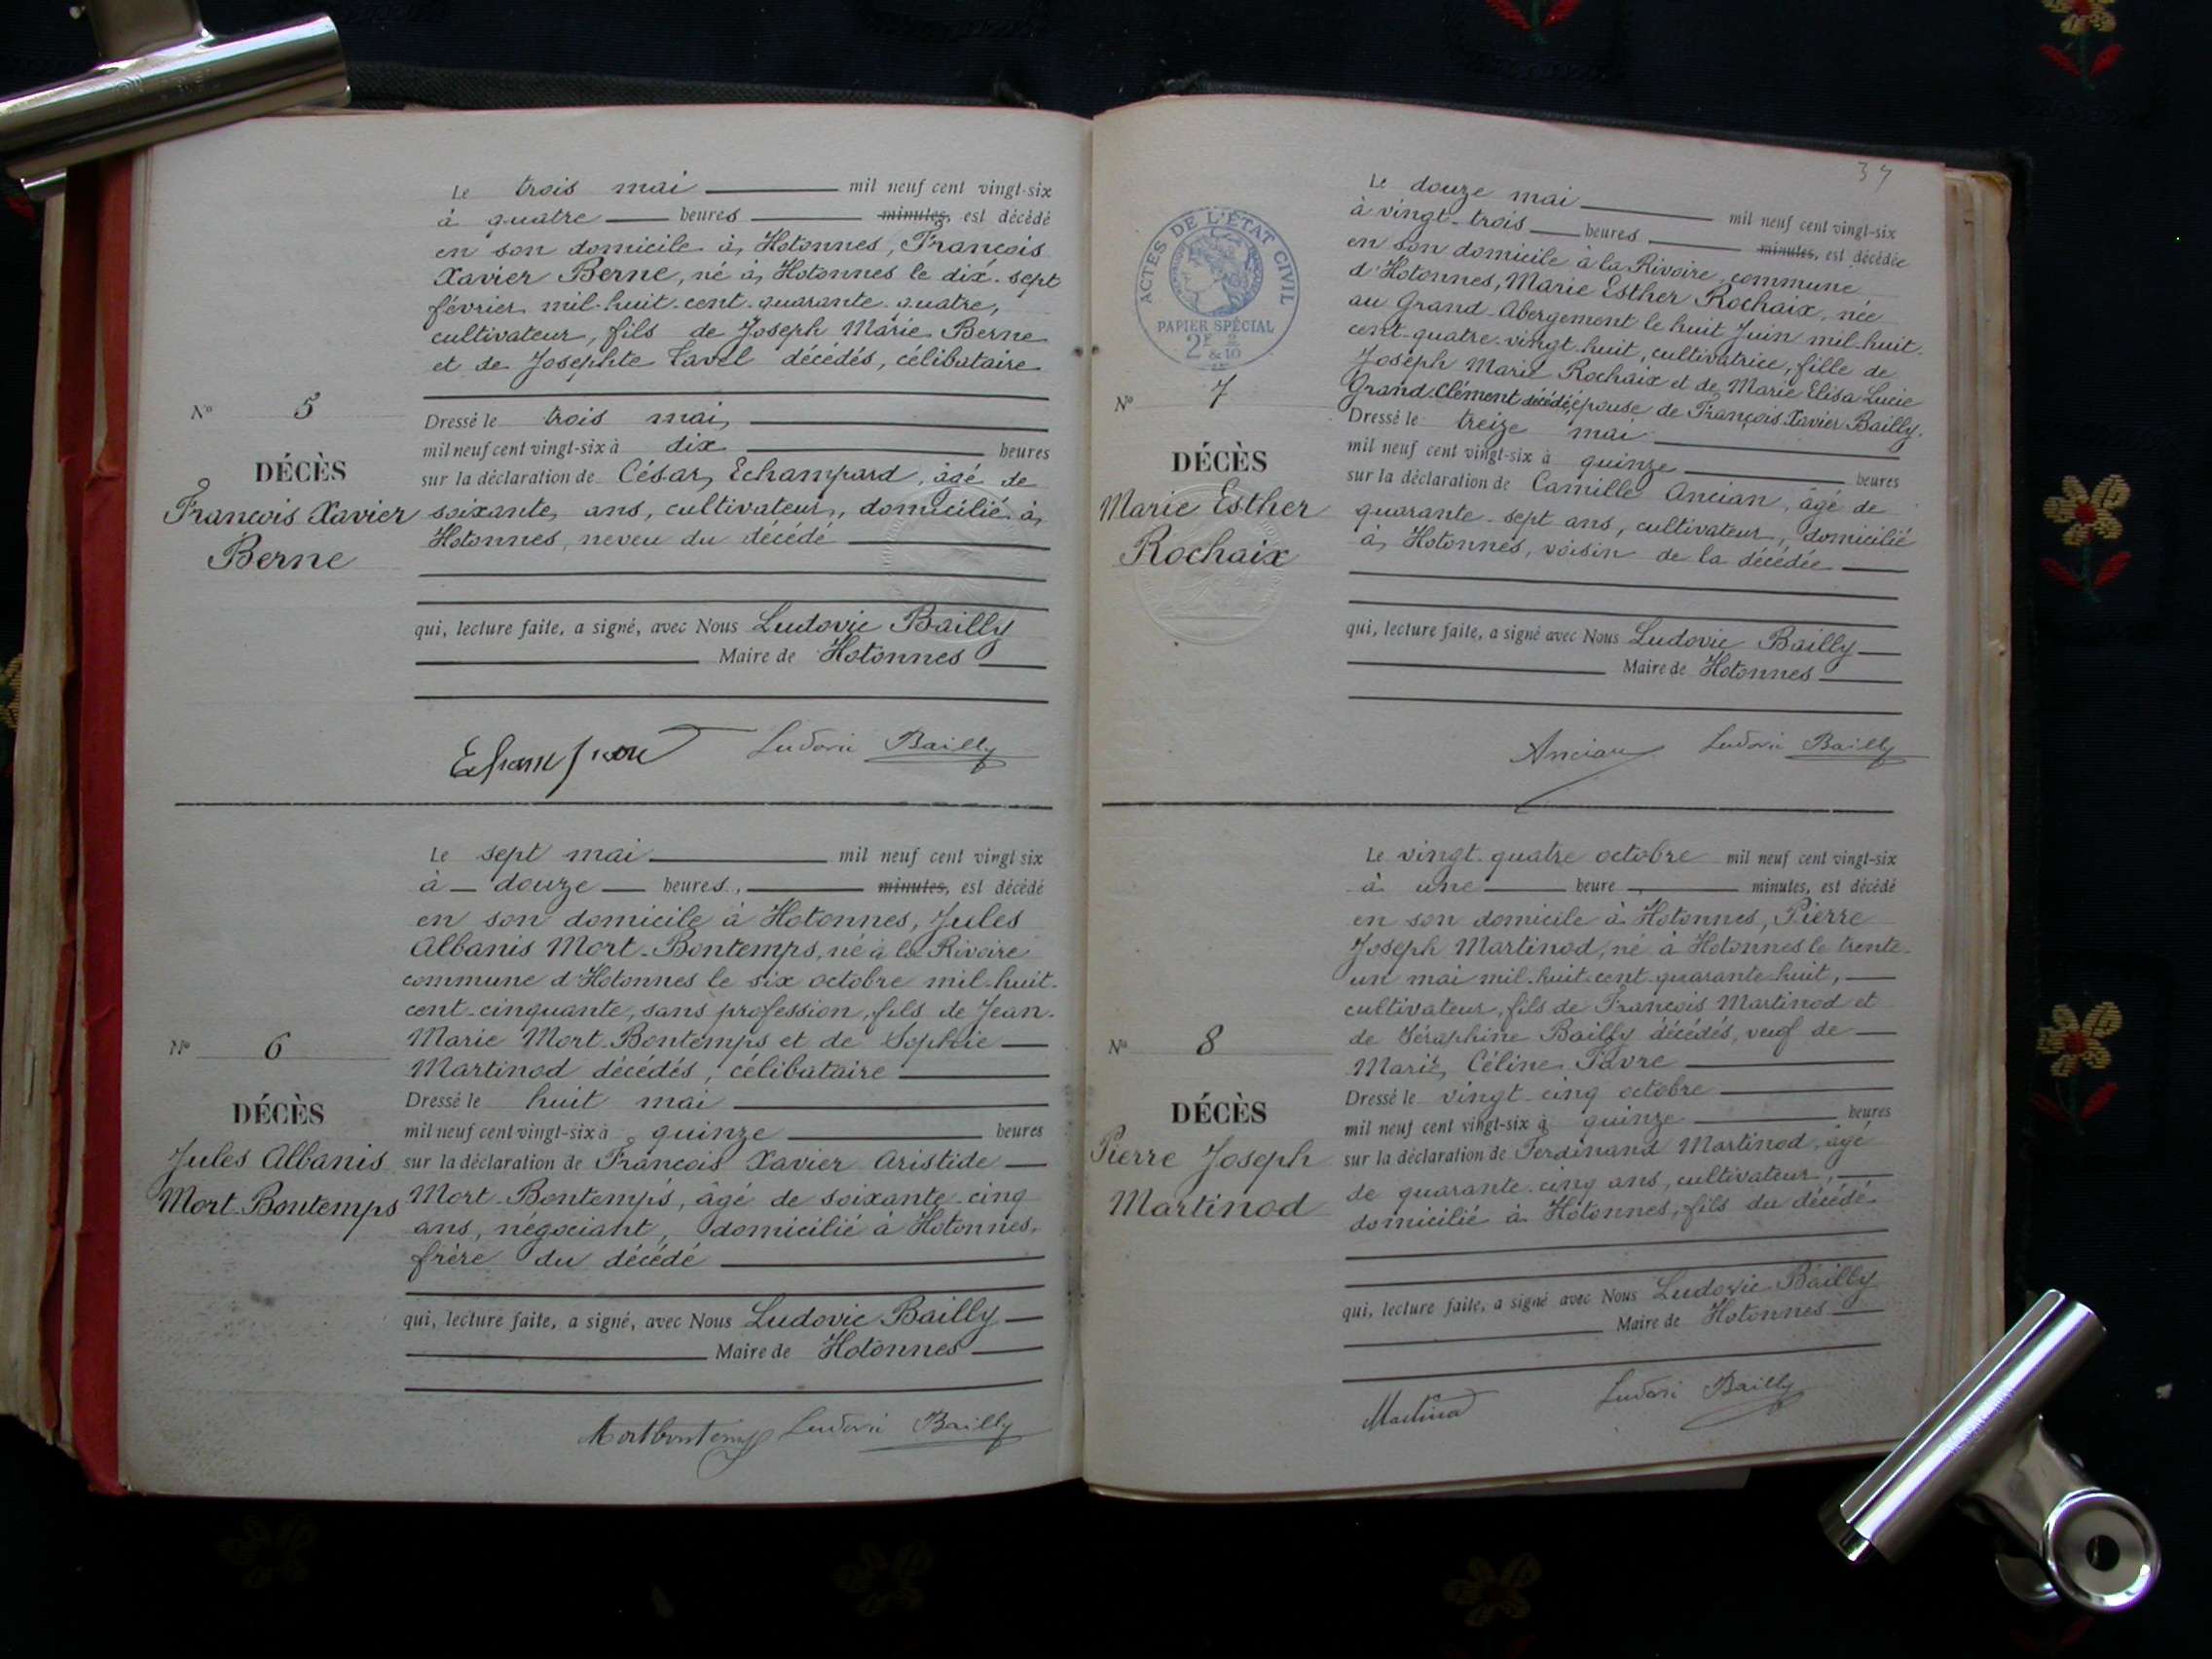 Le trois mai mil neuf cent vingt-six
à quatre heures minutes, est décédé
en son domicile à Hotonnes, François
Xavier Berne, né à Hotonnes le dix-sept
février mil-huit-cent-quarante-quatre,
cultivateur, fils de Joseph Marie Berne
et de Josephte Tavel décédés, célibataire
N° 5
Dressé le trois mai
mil neuf cent vingt-six à dix heures
DÉCÈS
sur la déclaration de César Echampard, âgé de
François Xavier
soixante ans, cultivateur, domicilié à
Berne
Hotonnes, neveu du décédé
qui, lecture faite, a signé, avec Nous Ludovic Bailly
Maire de Hotonnes
Ludovic Bailly
Le sept mai mil neuf cent vingt six
à douze heures, minutes, est décédé
en son domicile à Hotonnes, Jules
Albanis Mort-Bontemps, né à la Rivoire
commune d'Hotonnes le six octobre mil-huit-
cent-cinquante, sans profession, fils de Jean-
Marie Mort-Bontemps et de Sophie
N° 6
Martinod décédés, célibataire
DÉCÈS
Dressé le huit mai
mil neuf cent vingt-six à quinze heures
Jules Albanis
sur la déclaration de François Xavier Aristide
Mort-Bontemps
Mort-Bontemps, âgé de soixante-cinq
ans, négociant, domicilié à Hotonnes,
frère du décédé
qui, lecture faite, a signé, avec Nous Ludovic Bailly
Maire de Hotonnes
Mortbontemps Ludovic Bailly
37
ACTES DE L'ÉTAT CIVIL
PAPIER SPÉCIAL
Le douze mai mil neuf cent vingt-six
à vingt-trois heures minutes, est décédée
en son domicile à la Rivoire, commune
d'Hotonnes, Marie Esther Rochaix, née
au Grand-Abergement le huit Juin mil-huit-
cent-quatre-vingt-huit, cultivatrice, fille de
Joseph Marie Rochaix et de Marie Elisa Lucie
Grand-Clément décédée, épouse de François Xavier Bailly.
N° 7
Dressé le treize mai
mil neuf cent vingt-six à quinze heures
DÉCÈS
sur la déclaration de Camille Ancian, âgé de
Marie Esther
quarante-sept ans, cultivateur, domicilié
Rochaix
à Hotonnes, voisin de la décédée
qui, lecture faite, a signé avec Nous Ludovic Bailly
Maire de Hotonnes
Ancian Ludovic Bailly
Le vingt-quatre octobre mil neuf cent vingt-six
à une heure minutes, est décédé
en son domicile à Hotonnes, Pierre
Joseph Martinod, né à Hotonnes le trente-
un mai mil-huit-cent-quarante-huit,
cultivateur, fils de François Martinod et
de Séraphine Bailly décédés, veuf de
N° 8
Marie Céline Favre
DÉCÈS
Dressé le vingt-cinq octobre
mil neuf cent vingt-six à quinze heures
Pierre Joseph
sur la déclaration de Ferdinand Martinod, âgé
Martinod
de quarante-cinq ans, cultivateur,
domicilié à Hotonnes, fils du décédé
qui, lecture faite, a signé avec Nous Ludovic Bailly
Maire de Hotonnes
Martinod Ludovic Bailly